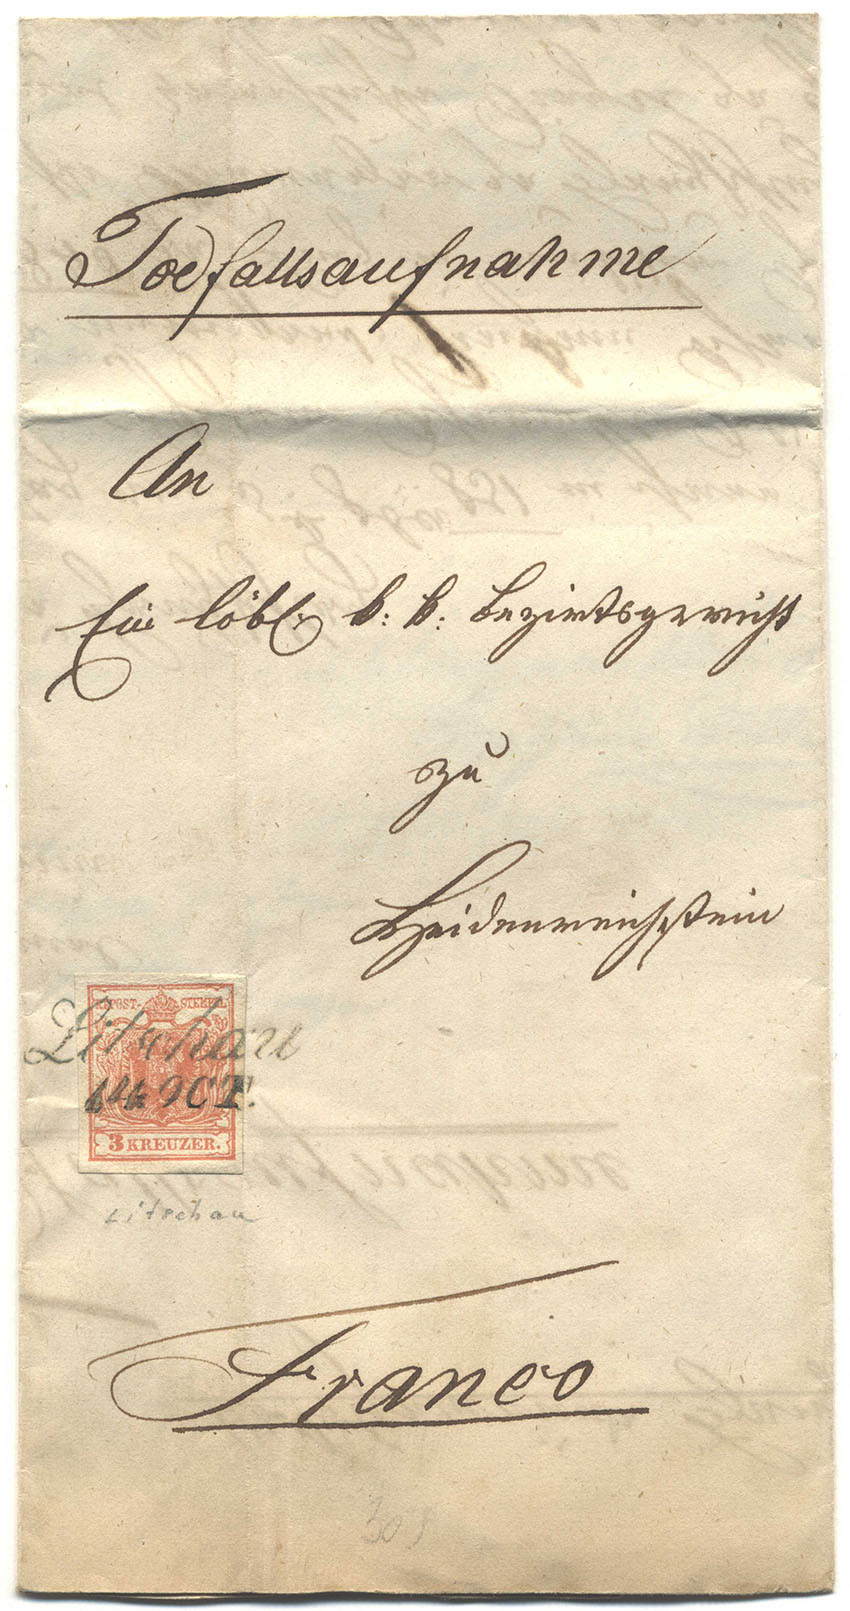 Todfallsaufnahme
An
Ein löbl. k: k: Bezirksgericht
zu
Heidenreichstein
KK POST-STEMPEL
Litschau
14 OCT.
3 KREUZER.
Litschau
Franco